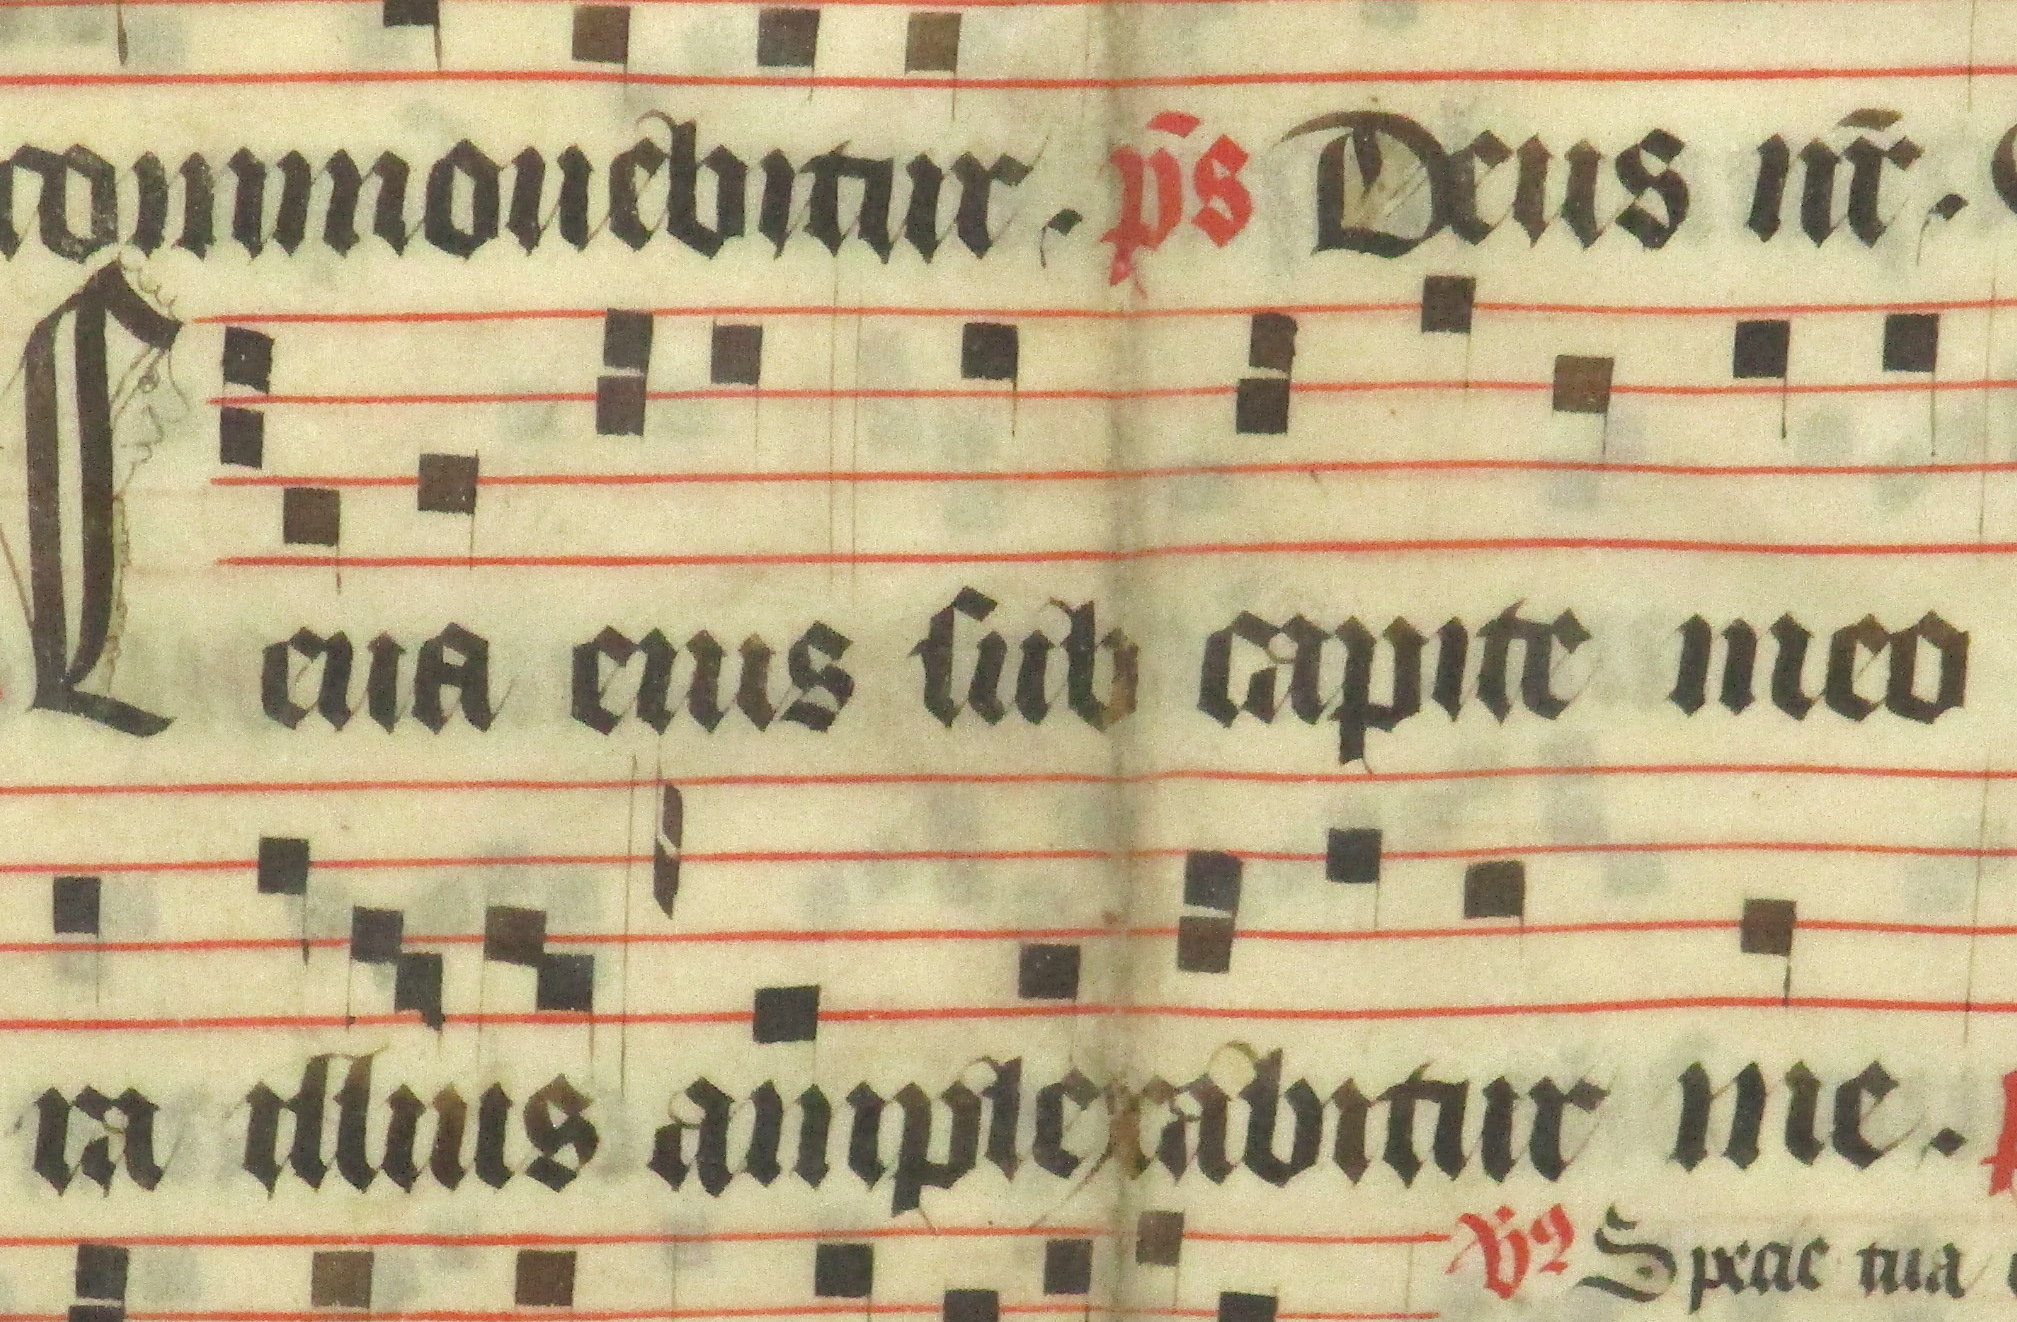 commouebitur. p̄s Deus nr̄.
Leua eius sub capite meo
ra illius amplexabitur me.
V̄ Specie tua